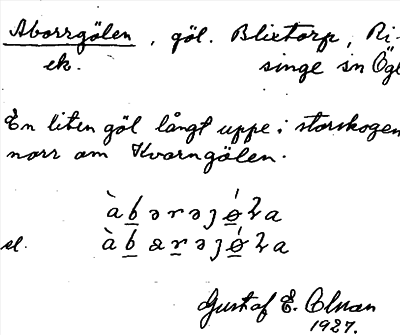 Aborrgölen, göl. Blixtorp, Ri-
ek. singe sn Ögl
En liten göl långt uppe i storskogen
norr om Kvarngölen.
àbərəȷǿɀa
el. àbarəȷǿɀa
Gustaf E.
1927.